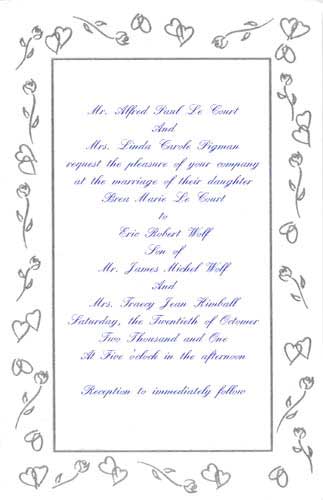 Mr. Alfred Paul Le Court
And
Mrs. Linda Carole Pigman
request the pleasure of your company
at the marriage of their daughter
Brea Marie Le Court
to
Eric Robert Wolf
Son of
Mr. James Michel Wolf
And
Mrs. Tracey Jean Kimball
Saturday, the Twentieth of Octomer
Two Thousand and One
At Five o'clock in the afternoon
Reception to immediately follow